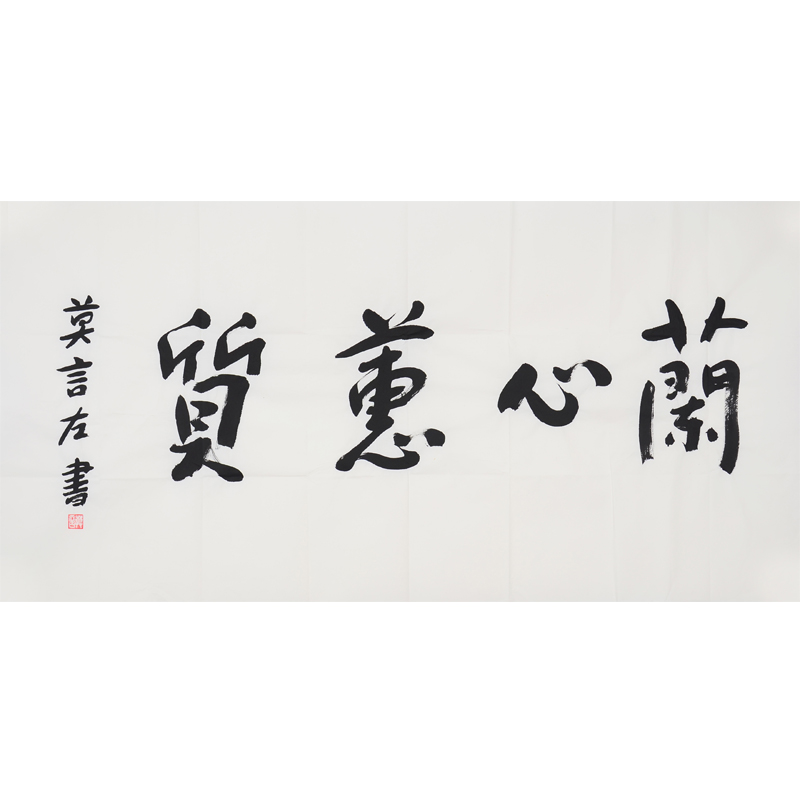 蘭心蕙質
莫言左書